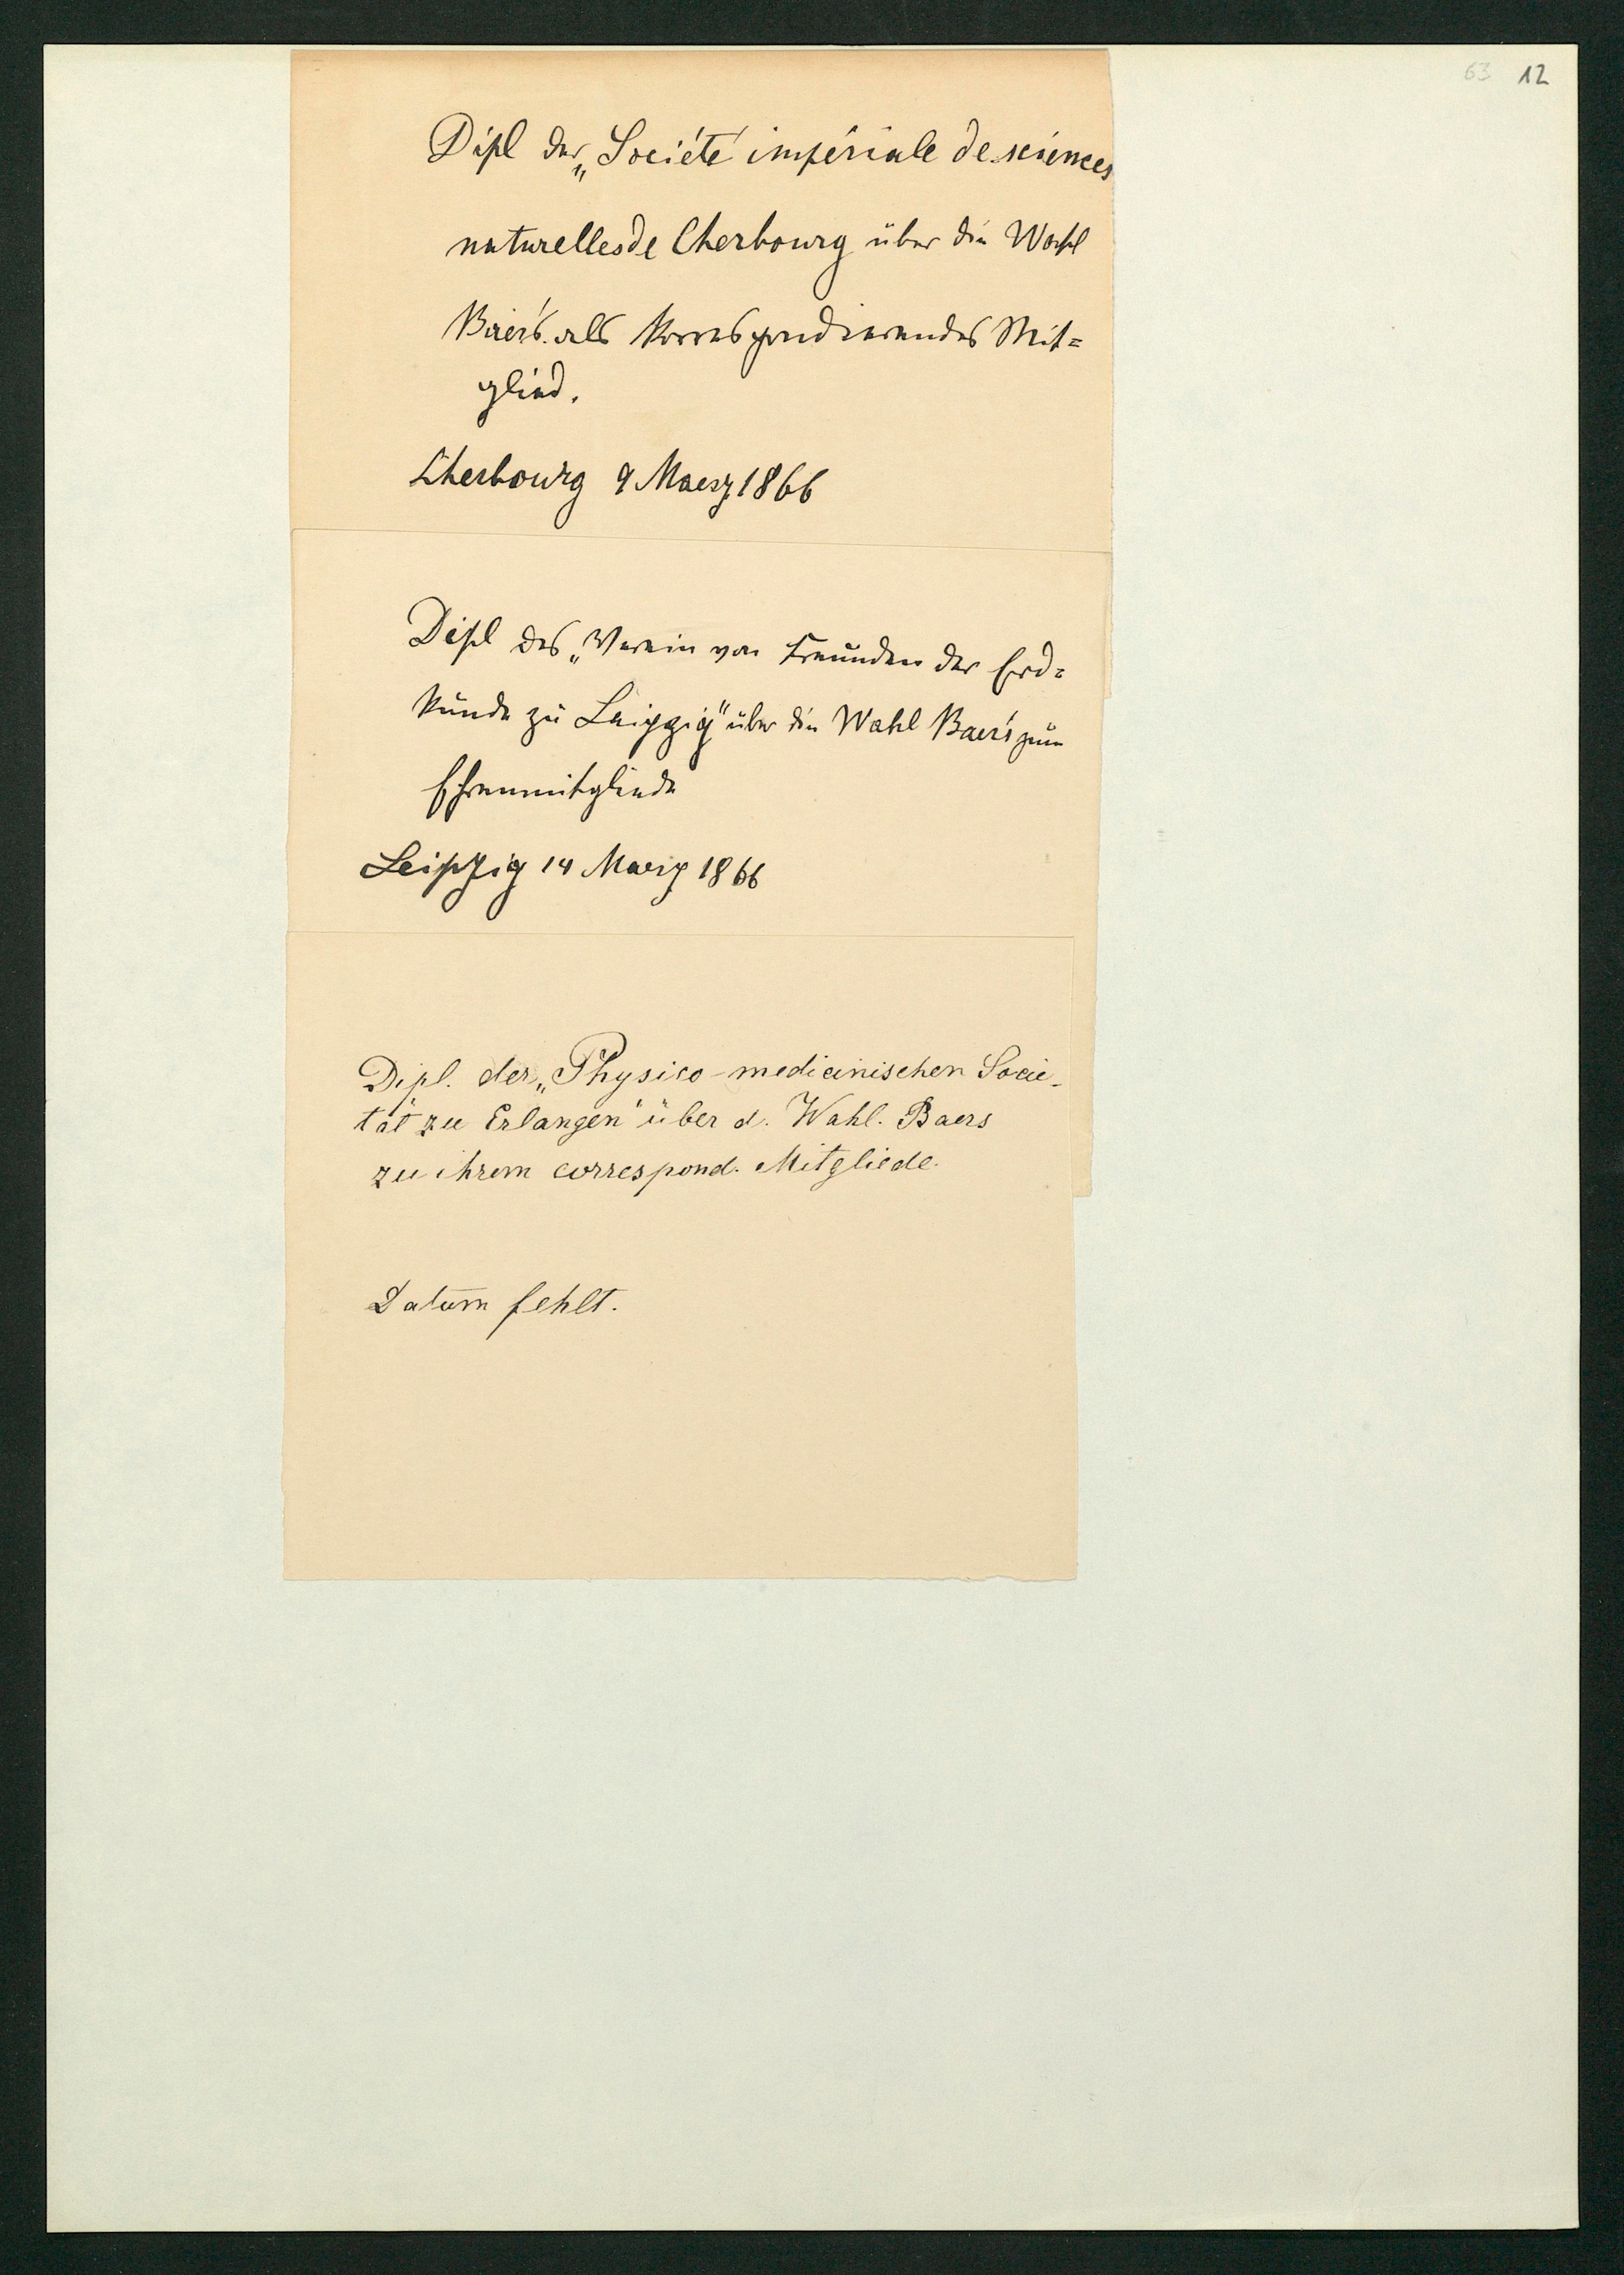 63 12
Dipl der „Société impériale de sciences
naturelles de Cherbourg über die Wahl
Baer's als korrespondierendes Mit=
glied.
Cherbourg 9 Maerz 1866
Dipl des „Verein von Freunden der Erd=
kunde zu Leipzig" über die Wahl Baer's zum
Ehrenmitgliede
Leipzig 14 Maerz 1866
Dipl. der „Physico-medicinischen Socie-
tät zu Erlangen" über d. Wahl. Baers
zu ihrem correspond. Mitgliede.
Datum fehlt.